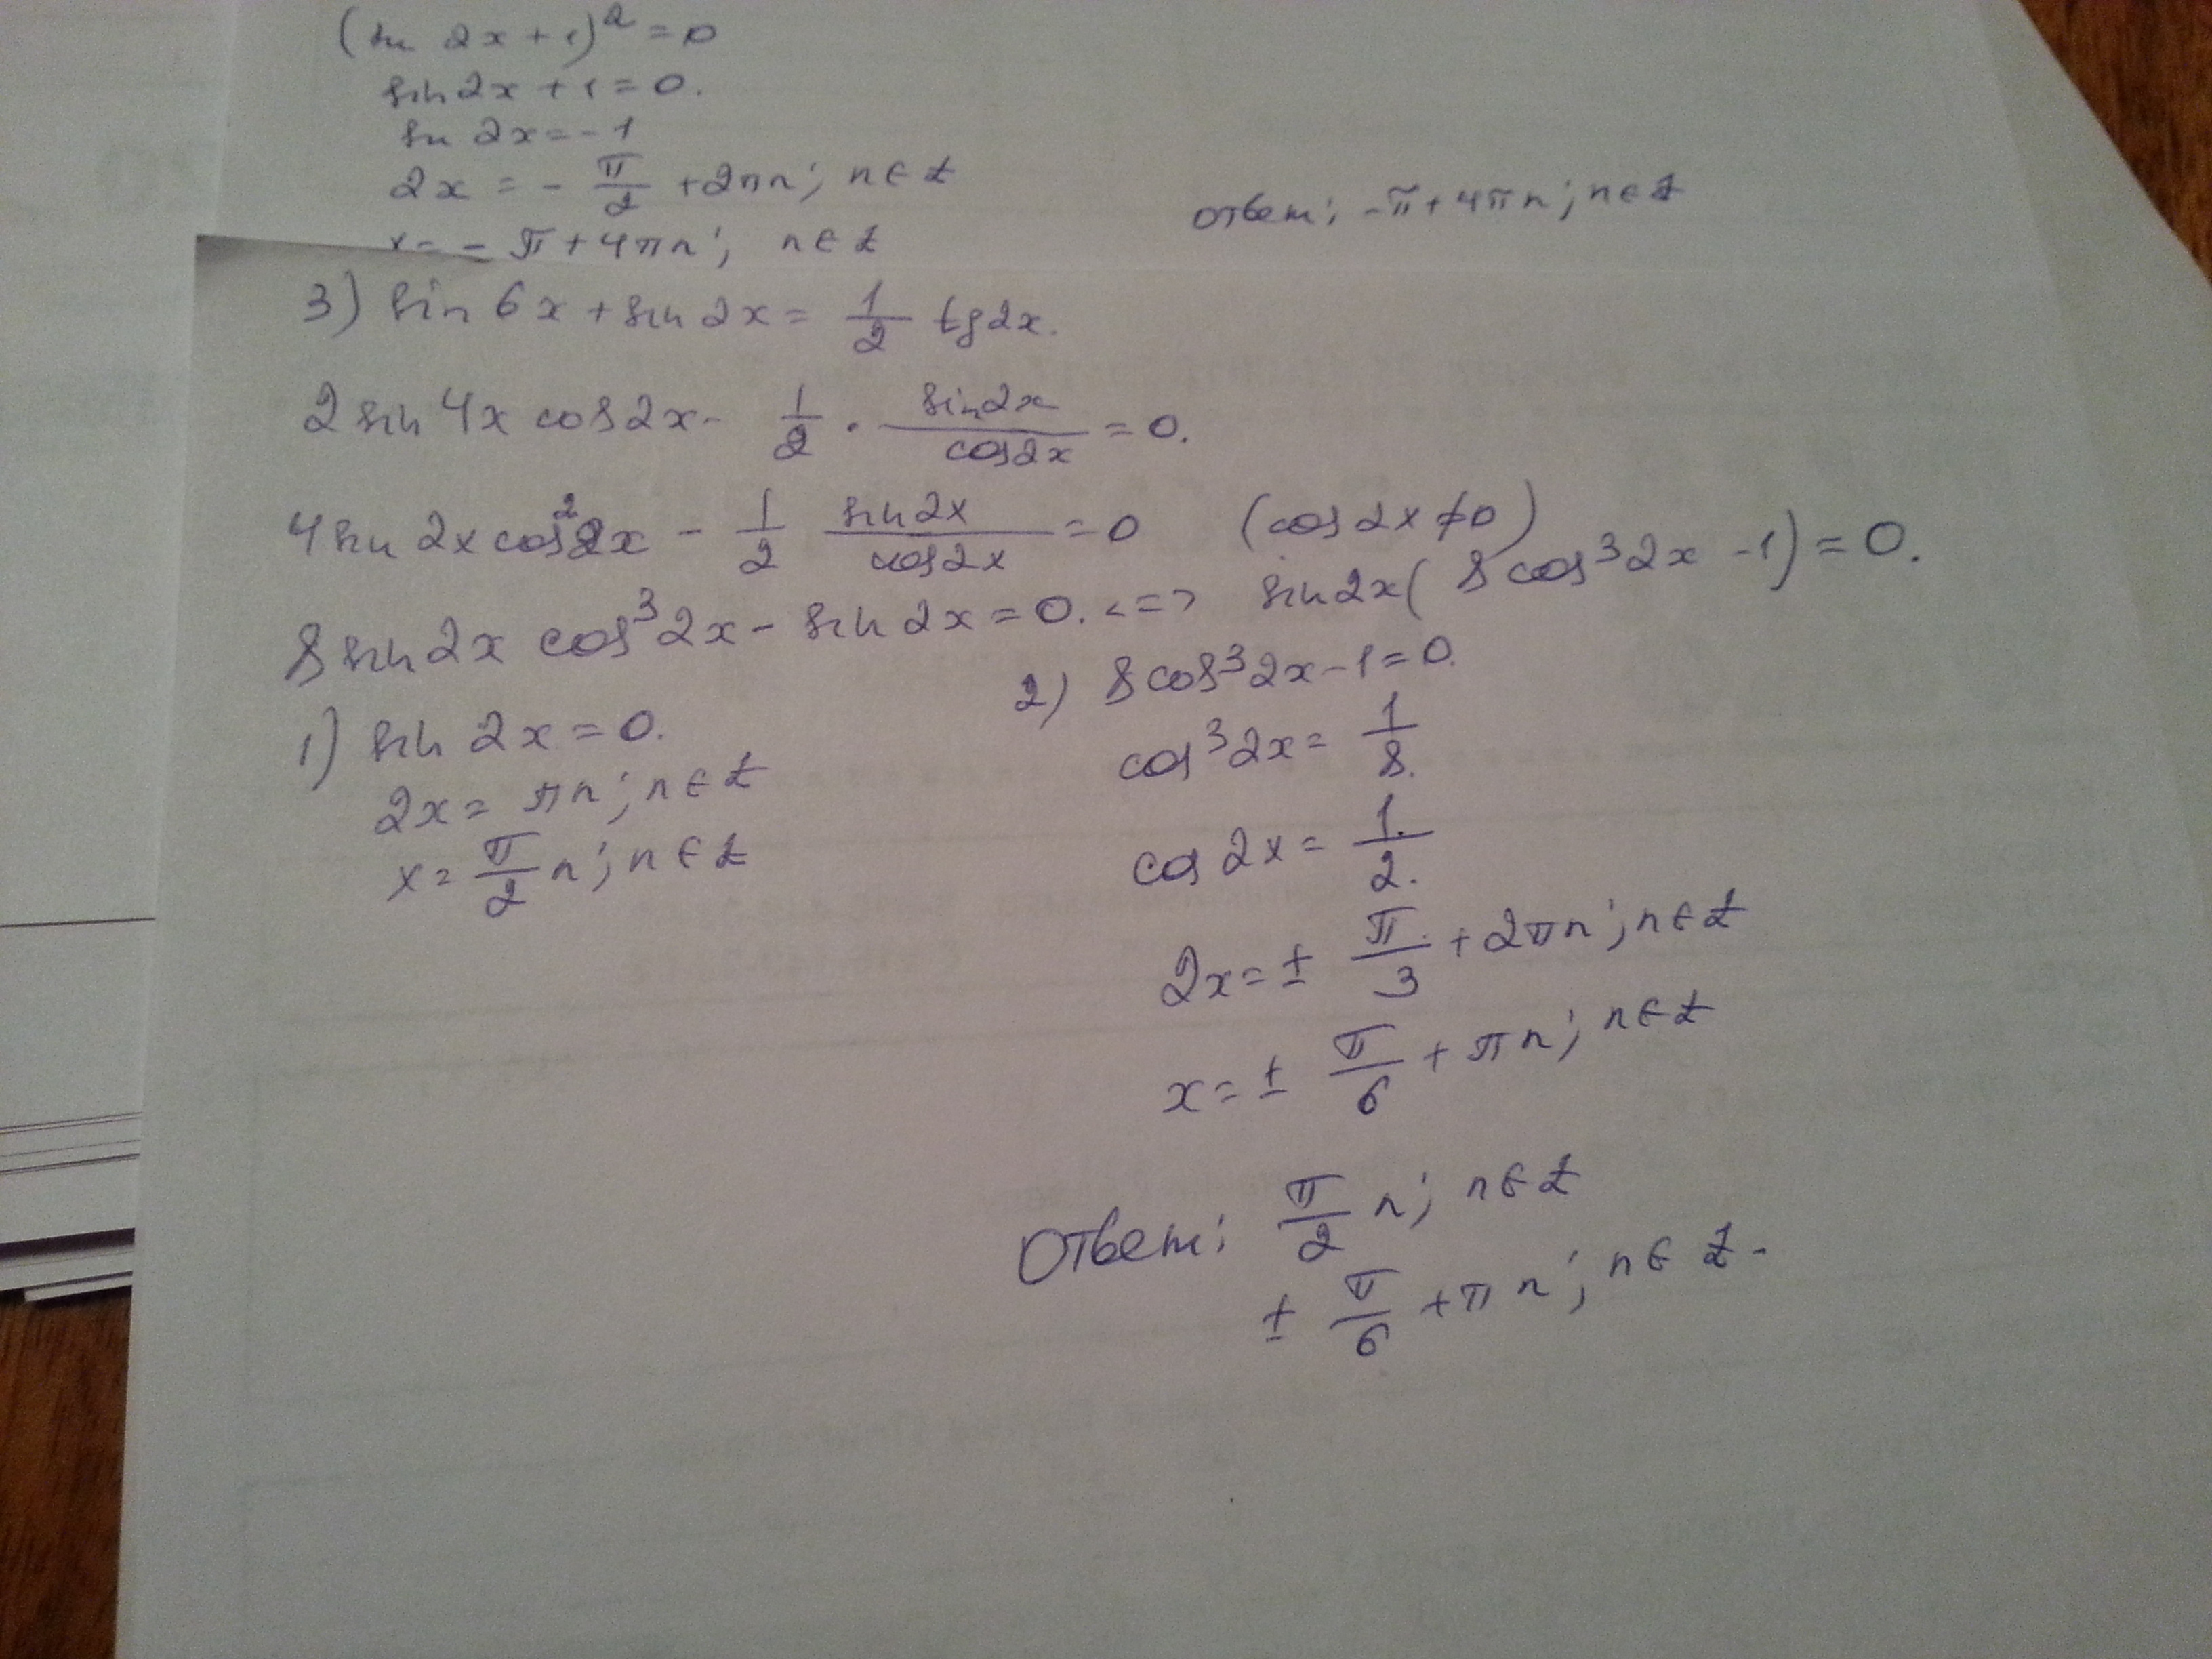 (sin 2x + 1)² = 0
sin 2x + 1 = 0.
sin 2x = - 1
2x = - π/2 + 2πn; n ∈ Z
x = - π + 4πn; n ∈ Z
Ответ: - π + 4πn; n ∈ Z
3) sin 6x + sin 2x = 1/2 tg 2x.
2 sin 4x cos 2x - 1/2 · sin 2x / cos 2x = 0.
4 sin 2x cos² 2x - 1/2 sin 2x / cos 2x = 0 (cos 2x ≠ 0)
8 sin 2x cos³ 2x - sin 2x = 0. <=> sin 2x (8 cos³ 2x - 1) = 0.
1) sin 2x = 0.
2x = πn; n ∈ Z
x = π/2 n; n ∈ Z
2) 8 cos³ 2x - 1 = 0.
cos³ 2x = 1/8.
cos 2x = 1/2.
2x = ± π/3 + 2πn; n ∈ Z
x = ± π/6 + πn; n ∈ Z
Ответ: π/2 n; n ∈ Z
± π/6 + πn; n ∈ Z.